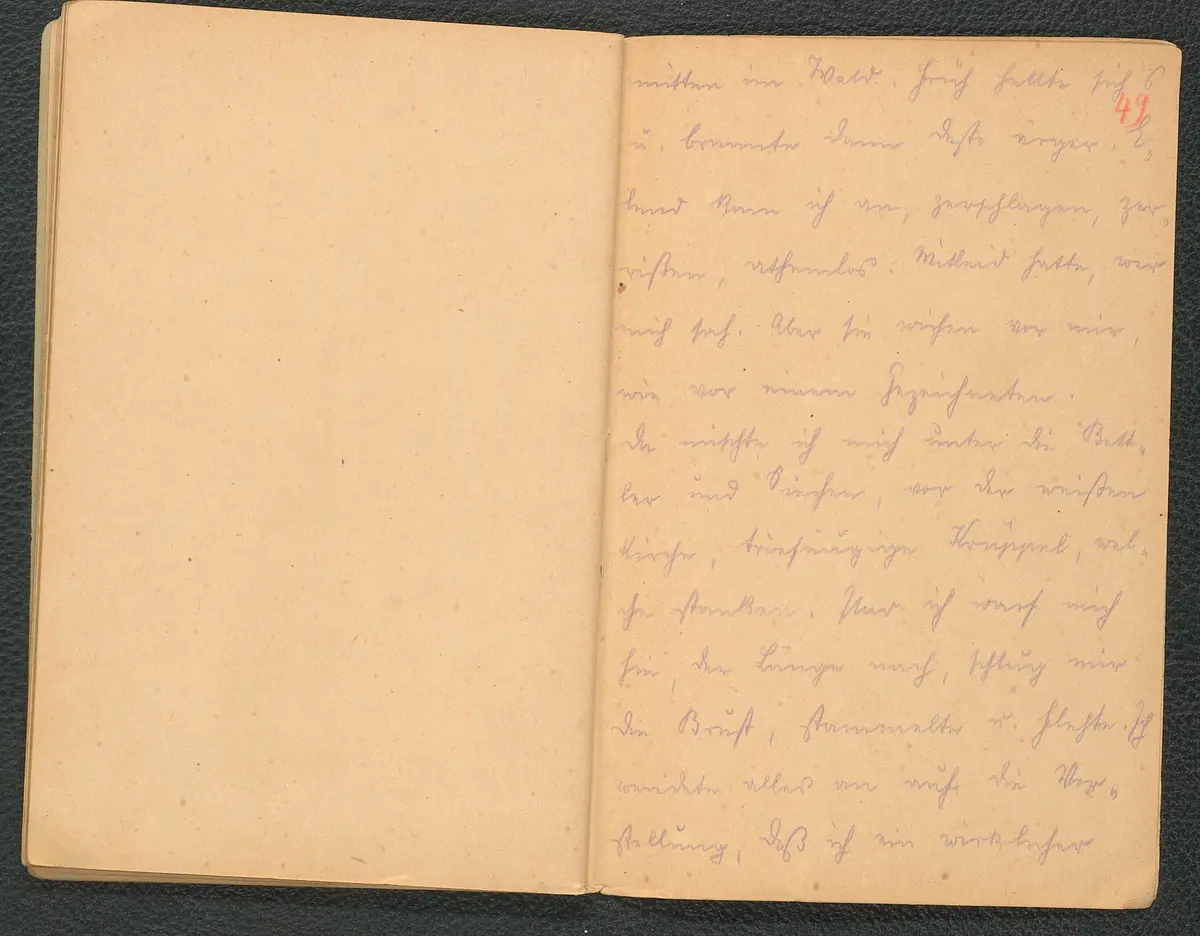 mitten im Wald. Früh hellte sich's
49
u. brannte dann desto ärger. E-
lend kam ich an, zerschlagen, zer-
rißen, athemlos. Mitleid hatte, wer
mich sah. Aber sie wichen vor mir,
wie vor einem Gezeichneten.
Da mischte ich mich unter die Bett-
ler und Siechen, vor der weißen
Kirche, triefäugige Krüppel, wel-
che stanken. Nur ich warf mich
hin, der Länge nach, schlug mir
die Brust, stammelte u. flehte. Ich
wendete alles an auf die Vor-
stellung, daß ich ein wirklicher